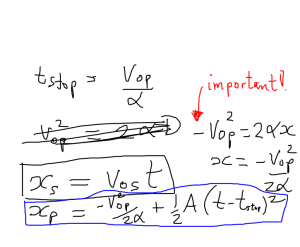 t_stop = V_op / α
important!
V_op² = 2α
-V_op² = 2αx
x = -V_op² / 2α
x_s = V_os t
x_p = -V_op² / 2α + 1/2 A (t - t_stop)²